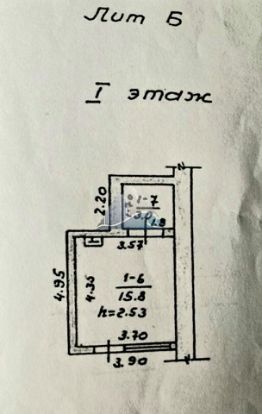 Лит Б
I этаж
2.20
1-7
1.8
3.57
4.95
4.35
1-6
15.8
h=2.53
3.70
3.90